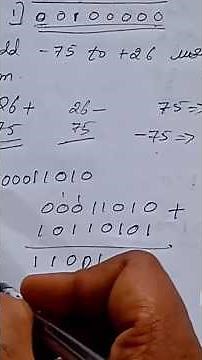 1] 00100000
-75 to +26
26+ 26- 75⇒
75 75 -75⇒
00011010
1 1
00011010 +
10110101
11001